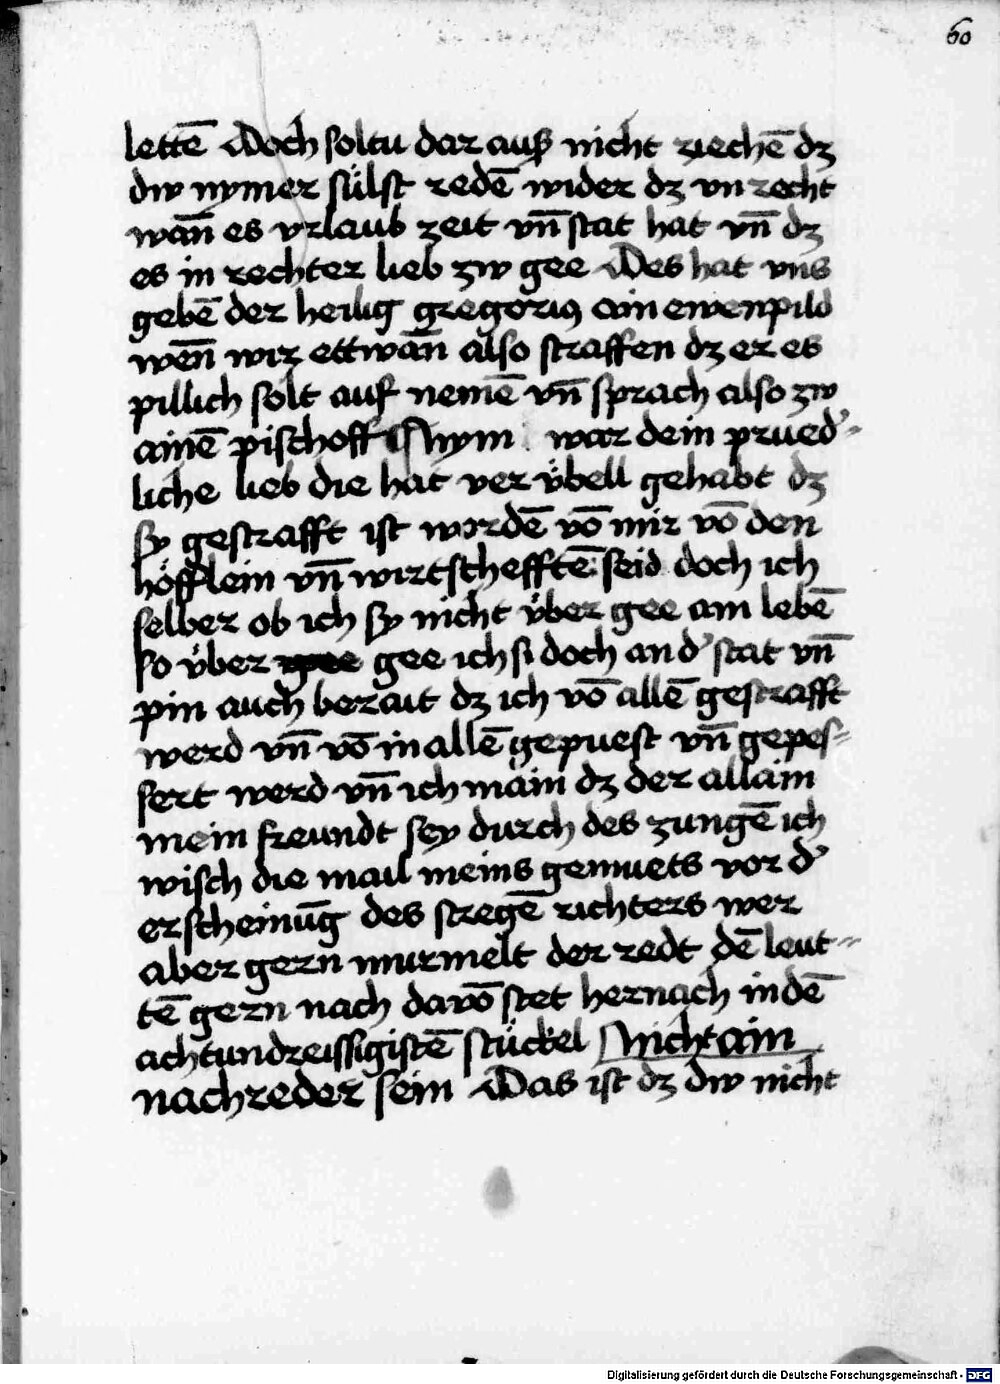 60
lettē Doch soltu dar auß nicht ziechē dz
dw nymer sülst redē wider dz vnrecht
wañ es vrlaub zeit vñ stat hat vñ dz
es in rechter lieb zw gee Des hat vns
gebē der heilig gregorius ain ewenpild
weñ wir ettwañ also straffen dz er es
pillich solt auf nemē vñ sprach also zw
ainē pischoff Nym war dein prued‾
liche lieb die hat ver übell gehabt dz
sy gestrafft ist wordē vō mir vō den
höfflein vñ wirtschefftē seid doch ich
selber ob ich sy nicht über gee am lebē
so über gee ich si doch an d‾ stat vñ
pin auch berait dz ich vō allē gestrafft
werd vñ vō in allē gepuest vñ gepes=
sert werd vñ ich main dz der allain
mein freundt sey durch des zungē ich
wisch die mail meins gemuets vor d‾
erscheinūg des stregē richters wer
aber gern murmelt der redt dē leut=
tē gern nach davō stet hernach in dē
achtundreissigistē stückel Nicht ain
nachreder sein Das ist dz dw nicht
Digitalisierung gefördert durch die Deutsche Forschungsgemeinschaft - DFG